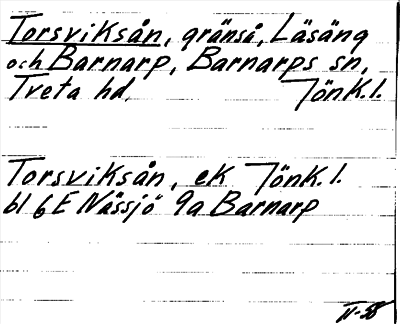 Torsviksån, gränså, Läsäng
och Barnarp, Barnarps sn,
Tveta hd. Jönk. l.
Torsviksån, ek Jönk. l.
bl 6E Nässjö 9a Barnarp
IV-58